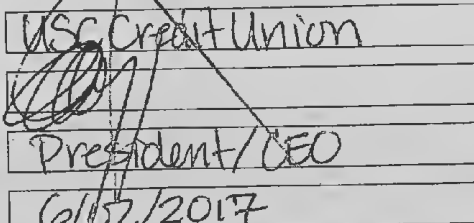 USC Credit Union
President/CEO
6/12/2017